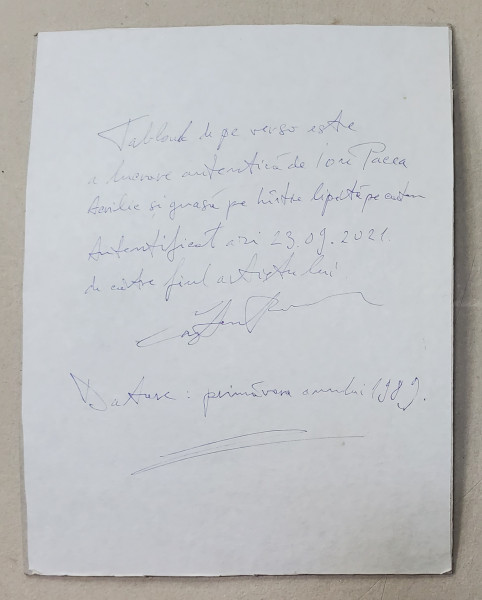 Tabloul de pe verso este
o lucrare autentică de Ion Pacea
Acrilic și guașă pe hârtie lipită pe carton
Autentificat azi 23.09.2021.
de către fiul artistului
Datare: primăvara anului 1989.